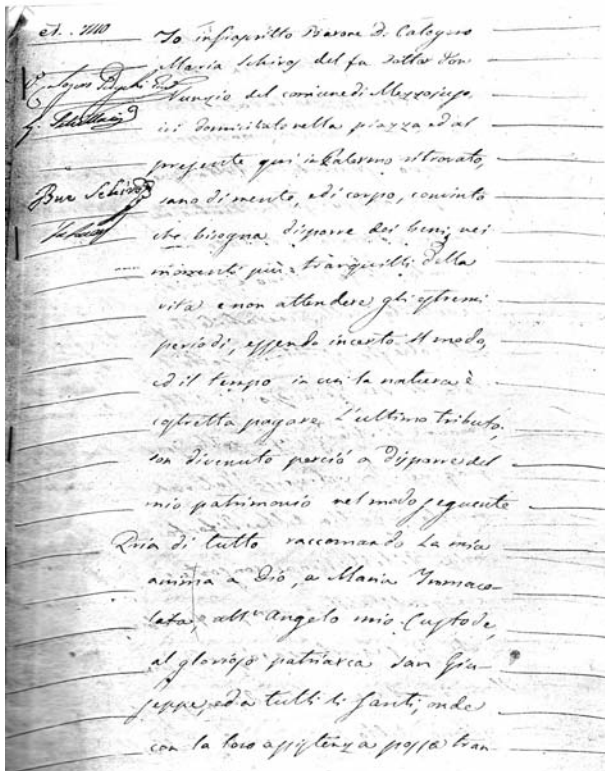 Io infrascritto Barone D. Calogero
Maria Schirò del fu Dottor Don
Nunzio del comune di Mezzojuso,
ivi domiciliato nella piazza, ed al
presente qui in Palermo ritrovato,
sano di mente, e di corpo, convinto
che bisogna disporre dei beni nei
momenti più tranquilli della
vita e non attendere gli estremi
periodi, essendo incerto il modo,
ed il tempo in cui la natura è
costretta pagare l'ultimo tributo,
son divenuto perciò a disporre del
mio patrimonio nel modo seguente
Pria di tutto raccomando la mia
anima a Dio, a Maria Immaco-
lata, all'Angelo mio Custode,
al glorioso patriarca San Giu-
seppe, ed a tutti li Santi, onde
con la loro assistenza possa tran-
Bne Schirò